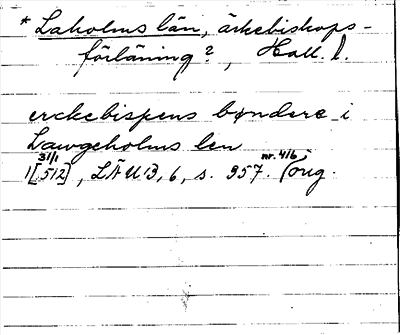 * Laholms län, ärkebiskops-
förläning?, Hall. l.
erckebispens bøndere i
Lawgeholms len
31/1 nr. 416
1[512], LÄU 13, 6, s. 957. orig.